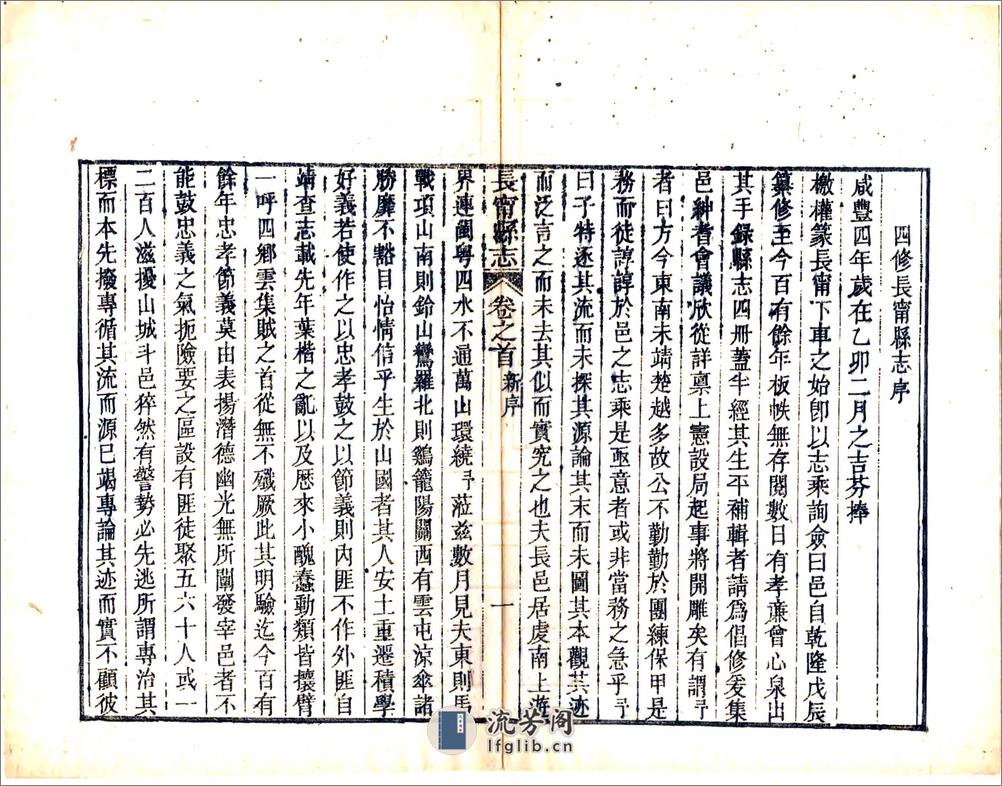 四修長甯縣志序
咸豐四年歲在乙卯二月之吉芬捧
檄權篆長甯下車之始卽以志乘詢僉曰邑自乾隆戊辰
纂修至今百有餘年板帙無存閱數日有孝廉曾心泉出
其手錄縣志四冊蓋半經其生平補輯者請爲倡修爰集
邑紳耆會議欣從詳禀上憲設局起事將開雕矣有謂予
者曰方今東南未靖楚越多故公不勤勤於團練保甲是
務而徒諄諄於邑之志乘是亟意者或非當務之急乎予
曰子特逐其流而未探其源論其末而未圖其本觀其迹
而泛言之而未去其似而實究之也夫長邑居處南上游
長甯縣志 卷之首 新序 一
界連閩粤四水不通萬山環繞予蒞兹數月見夫東則馬
戰項山南則鈴山鸞羅北則鷄籠陽關西有雲屯涼傘諸
勝靡不豁目怡情信乎生於山國者其人安土重遷積學
好義若使作之以忠孝鼓之以節義則內匪不作外匪自
靖查志載先年葉楷之亂以及歷來小醜蠢動類皆攘臂
一呼四鄉雲集賊之首從無不殲厥此其明驗迄今百有
餘年忠孝節義莫由表揚潛德幽光無所闡發宰邑者不
能鼓忠義之氣扼險要之區設有匪徒聚五六十人或一
二百人滋擾山城斗邑猝然有警勢必先逃所謂專治其
標而本先撥專循其流而源已竭專論其迹而實不顧彼
流芳阁
lfglib.cn